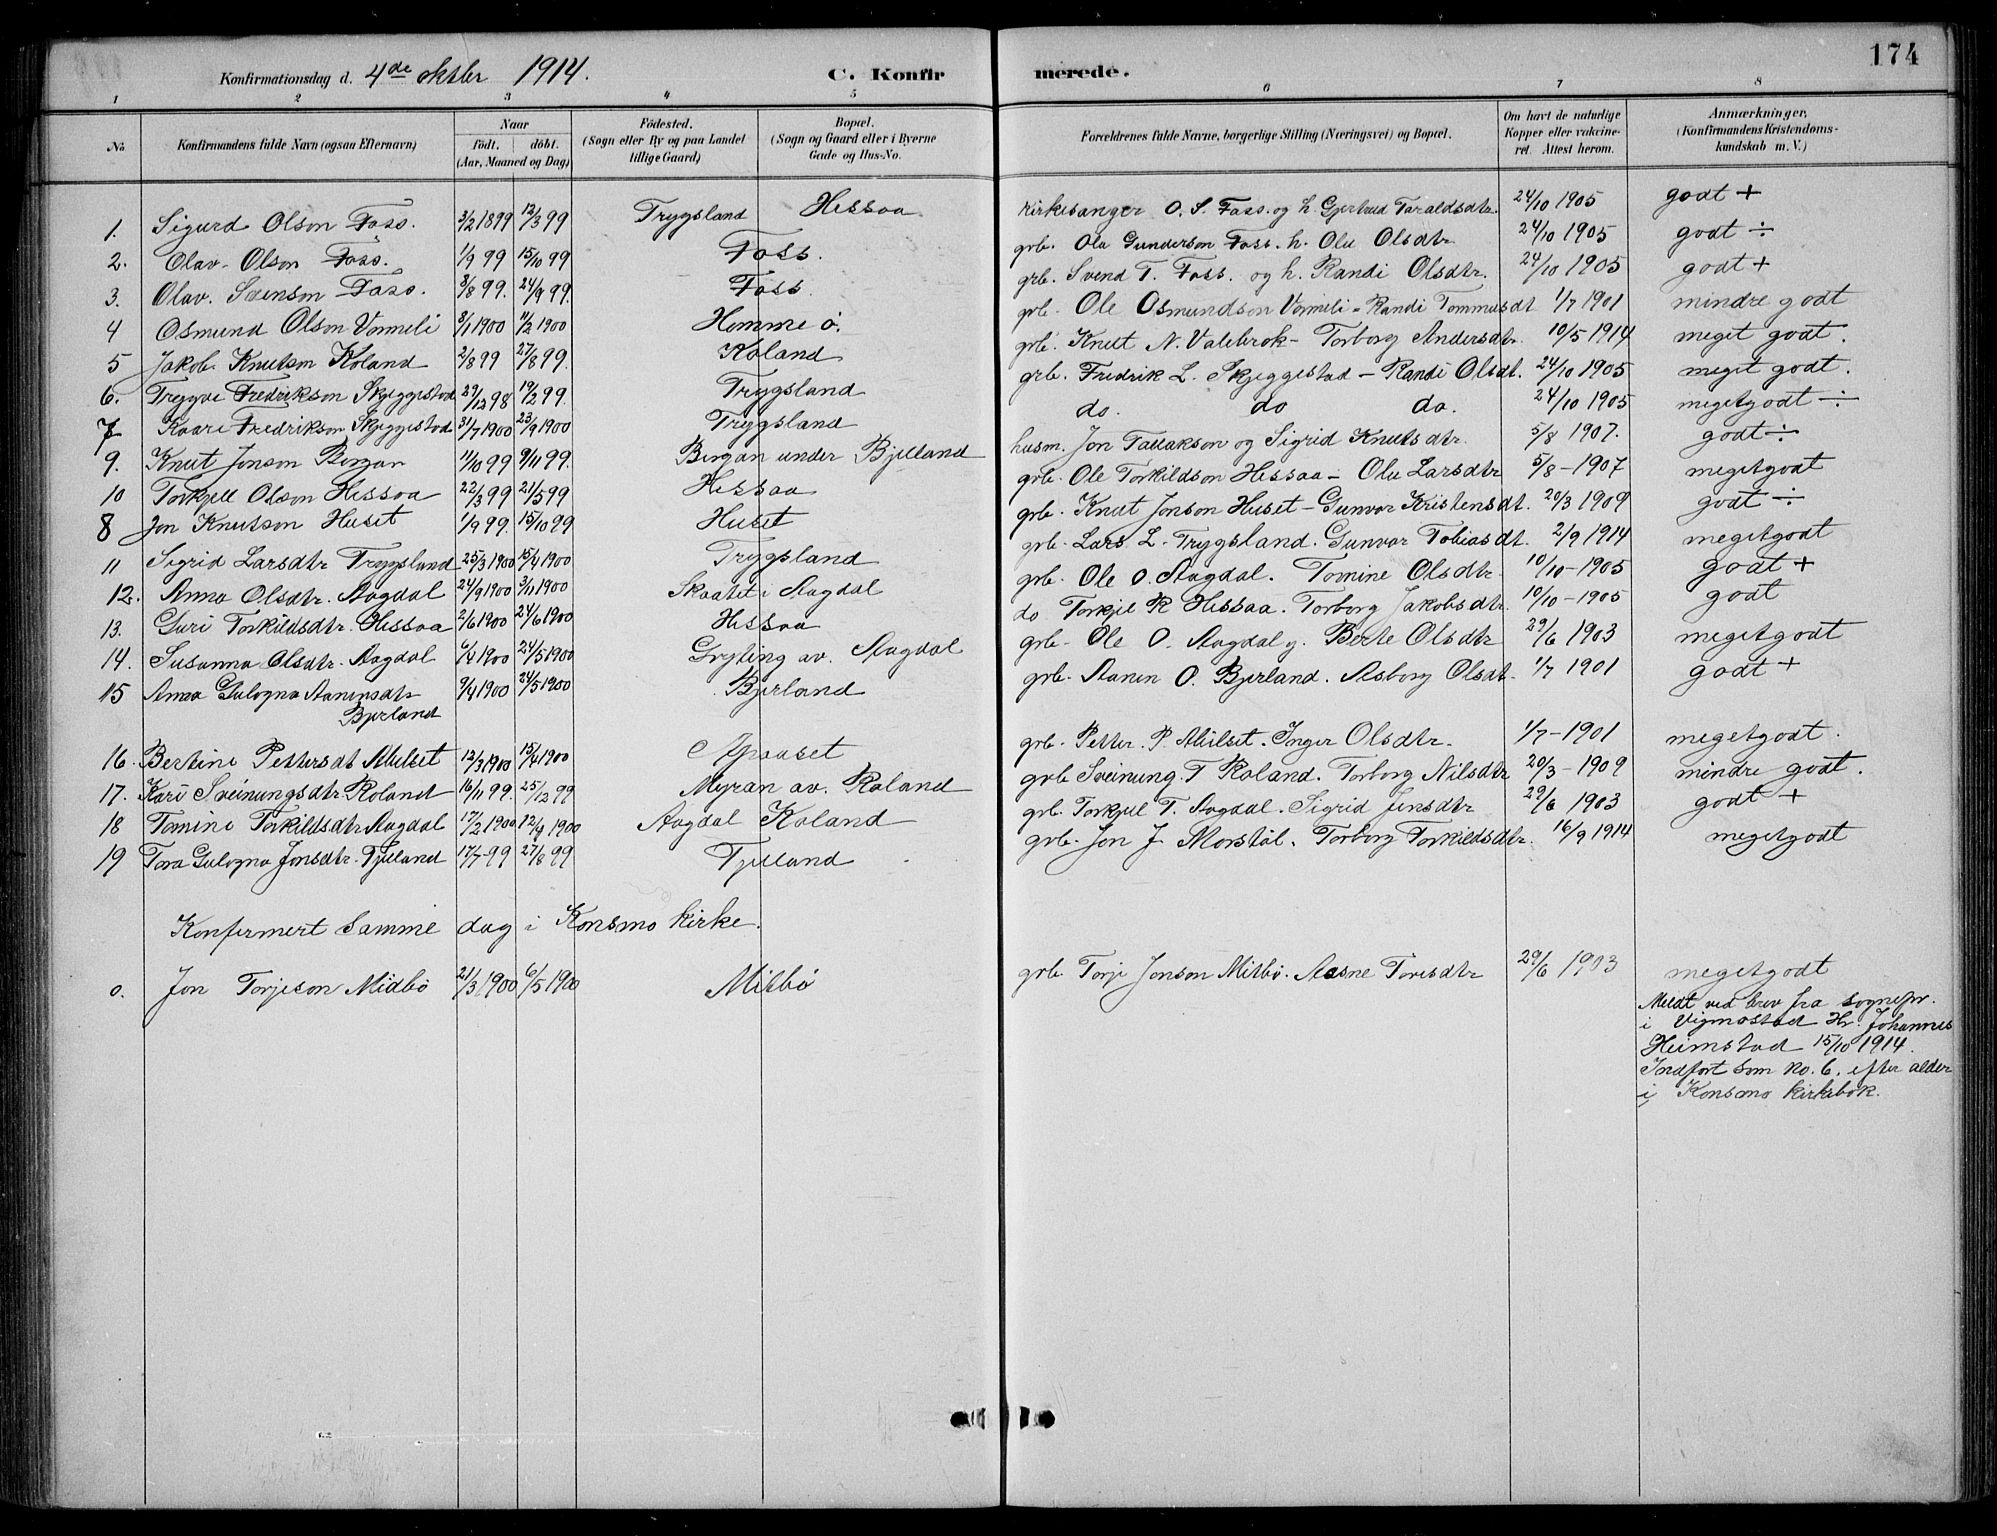 174
Konfirmationsdag d. 4de oktbr 1914. C. Konfirmerede.
1 2 3 4 5 6 7 8
No. Konfirmandens fulde Navn (ogsaa Efternavn) Naar födt. döbt. (Aar, Maaned og Dag) Födested. (Sogn eller By og paa Landet tillige Gaard) Bopæl. (Sogn og Gaard eller i Byerne Gade og Hus-No. Forældrenes fulde Navne, borgerlige Stilling (Næringsvei) og Bopæl. Om havt de naturlige Kopper eller vakcineret. Attest herom. Anmærkninger, (Konfirmandens Kristendomskundskab m. V.)
1. Sigurd Olson Foss. 3/2 1899 12/3 99 Trygsland Hessaa kirkesanger O. S. Foss. og h. Gjertrud Taraldsdtr. 24/10 1905 godt +
2. Olav Olson Foss. 1/9 99 15/10 99 Foss. grb. Ole Gunderson Foss. h. Olu Olsdtr 24/10 1905 godt ÷
3. Olav. Svenson Foss. 3/8 99. 24/9 99. Foss. grb. Svend T. Foss. og h. Randi Olsdtr. 24/10 1905 godt +
4 Osmund Olson Vormeli 3/1 1900 11/2 1900 Homme ö. grb. Ole Osmundson Vormeli - Randi Tommasdt 1/7 1901 mindre godt
5 Jakob Knutson Koland 2/8 99 27/8 99. Koland grb. Knut N. Valebrok - Torborg Andersdtr. 10/5 1914 meget godt.
6. Trygve Fredrikson Skjeggestad 29/12 98 19/2 99. Trygsland grb. Fredrik L. Skjeggestad - Randi Olsdt. 24/10 1905 meget godt.
7 Kaare Fredrikson Skjeggestad 31/7 1900 23/9 1900 Trygsland do. do do. 24/10 1905 megetgodt ÷
9. Knut Jonson Bergan 11/10 99 9/11 99. Bergan under Bjelland husm. Jon Tallakson og Sigrid Knutsdtr. 5/8 1907. godt ÷
10 Torkjell Olson Hessaa 22/3 99 21/5 99 Hessaa grb. Ole Torkildson Hessaa - Olu Larsdtr 5/8 - 1907 megetgodt
8 Jon Knutson Huset 1/9 99. 15/10 99 Huset grb. Knut Jonson Huset - Gunvor Kristensdt. 20/3 1909 godt ÷
11 Sigrid Larsdtr Trygsland 25/3 1900 15/4 1900 Trygsland grb. Lars L. Trygsland. Gunvor Tobiasdt. 2/9 1914 megetgodt
12. Anna Olsdtr. Aagdal 24/9 1900 3/11 1900 Skaatet i Aagdal grb. Ole O. Aagdal. Tomine Olsdtr. 10/10 - 1905 godt +
13. Guri Torkildsdtr. Hessaa 2/6 1900 24/6 1900 Hessaa do Torkjel K Hessaa. Torborg Jakobsdtr. 10/10 - 1905 godt
14. Susanna Olsdtr. Aagdal 6/4 1900 24/5 1900 Gryting av. Aagdal grb. Ole O. Aagdal g. Berte Olsdtr 29/6 1903 megetgodt
15 Anna Gulogna Aanensdtr Bjerland 9/4 1900 24/5 1900 Bjerland grb. Aanen O. Bjerland. Aasborg Olsdt. 1/7 1901 godt +
16. Bertine Pettersdt Mulset 12/3 1900 15/4 1900 grb. Petter. P. Mulset. Inger Olsdtr. 1/7 - 1901 megetgodt.
17. Kari Sveinungsdtr Roland 16/11 99. 25/12 99 Myran av. Roland grb Sveinung T Roland. Torborg Nilsdtr 20/3 - 1909 mindre godt.
18 Tomine Torkildsdtr Aagdal 17/2 1900 12/4 1900 Aagdal Koland grb. Torkjell T. Aagdal. Sigrid Jensdtr 29/6 1903 godt +
19 Tora Gulogna Jonsdtr. Tjelland 17/7 99 27/8 99 Tjelland grb. Jon J. Morstöl. Torborg Torkildsdtr. 16/9 1914 megetgodt
Konfermert samme dag i Konsmo kirke.
0. Jon Torjeson Midbö 21/3 1900 6/5 1900 Mitbö grb. Torje Jonson Mitbö. Aasne Toresdtr 29/6 1903 megetgodt
Meldt ved brev fra sognepr.
i Vigmostad Hr. Johannes
Heimstad 15/10 1914.
Indfört som no. 6. efter alder
i Konsmo kirkebok.